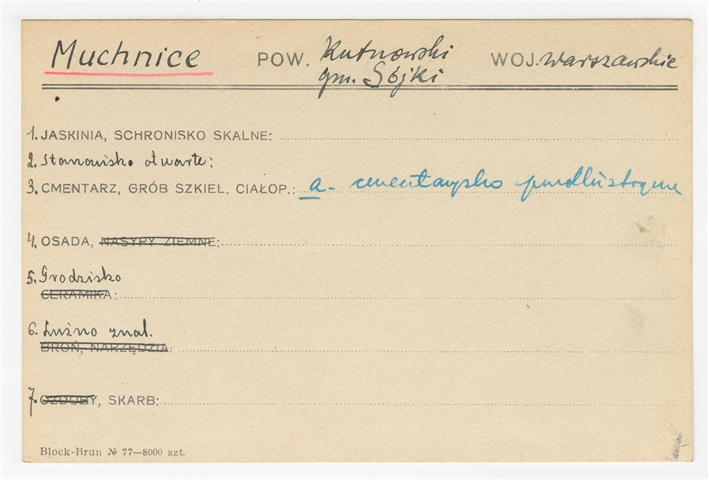 Muchnice POW. Kutnowski WOJ. warszawskie
gm. Sójki
1. JASKINIA, SCHRONISKO SKALNE:
2. Stanowisko otwarte:
3. CMENTARZ, GRÓB SZKIEL. CIAŁOP.: a. cmentarzysko
4. OSADA, NASYPY ZIEMNE:
5. Grodzisko
CERAMIKA:
6. Luźno znal.
BROŃ, NARZĘDZIA:
7. OZDOBY, SKARB:
Block-Brun № 77—8000 szt.